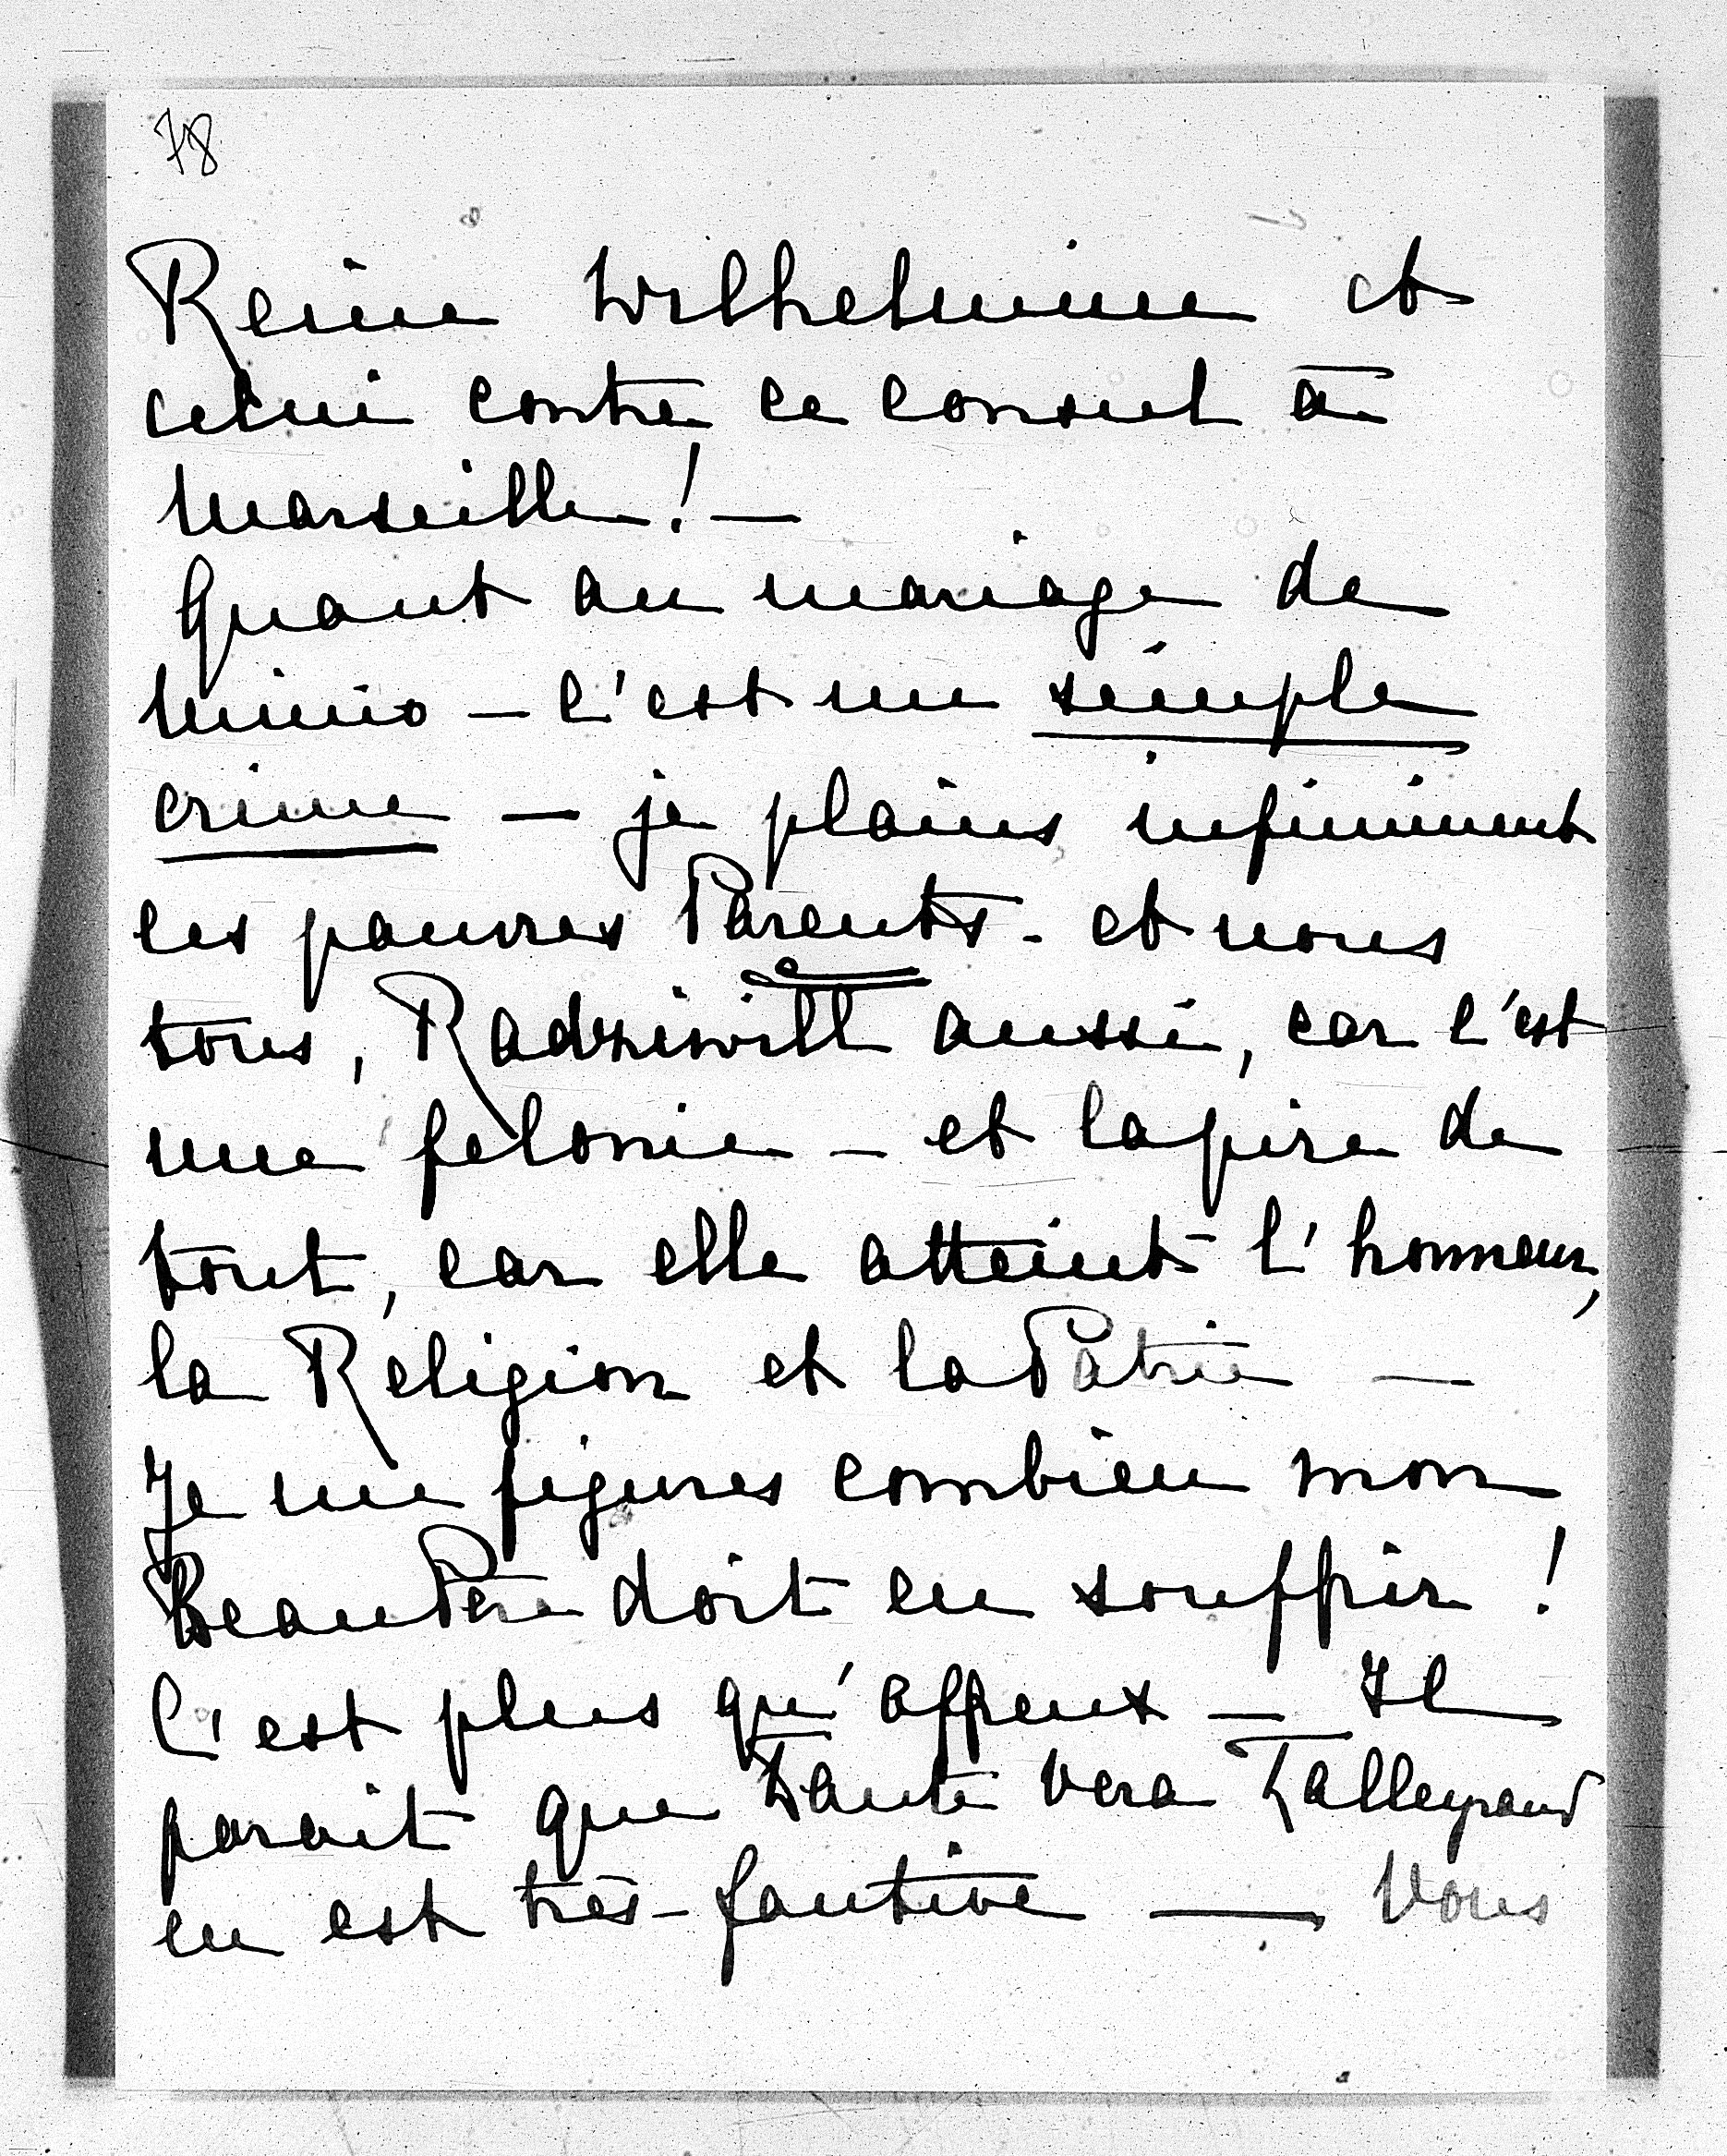 78
Reine Wilhelmine et
celui contre ce consul à
Marseille! —
Quant au mariage de
Mimio — c'est un simple
crime — je plains infiniment
les pauvres Parents - et nous
tous, Radziwill aussi, car c'est
une felonie — et la pire de
tout, car elle atteint l'honneur,
la Religion et la Patrie —
Je me figures combien mon
BeauPère doit en souffrir !
C'est plus qu'affreux — Il
parait que Tante Vera Talleyrand
en est très-fautive — Vous